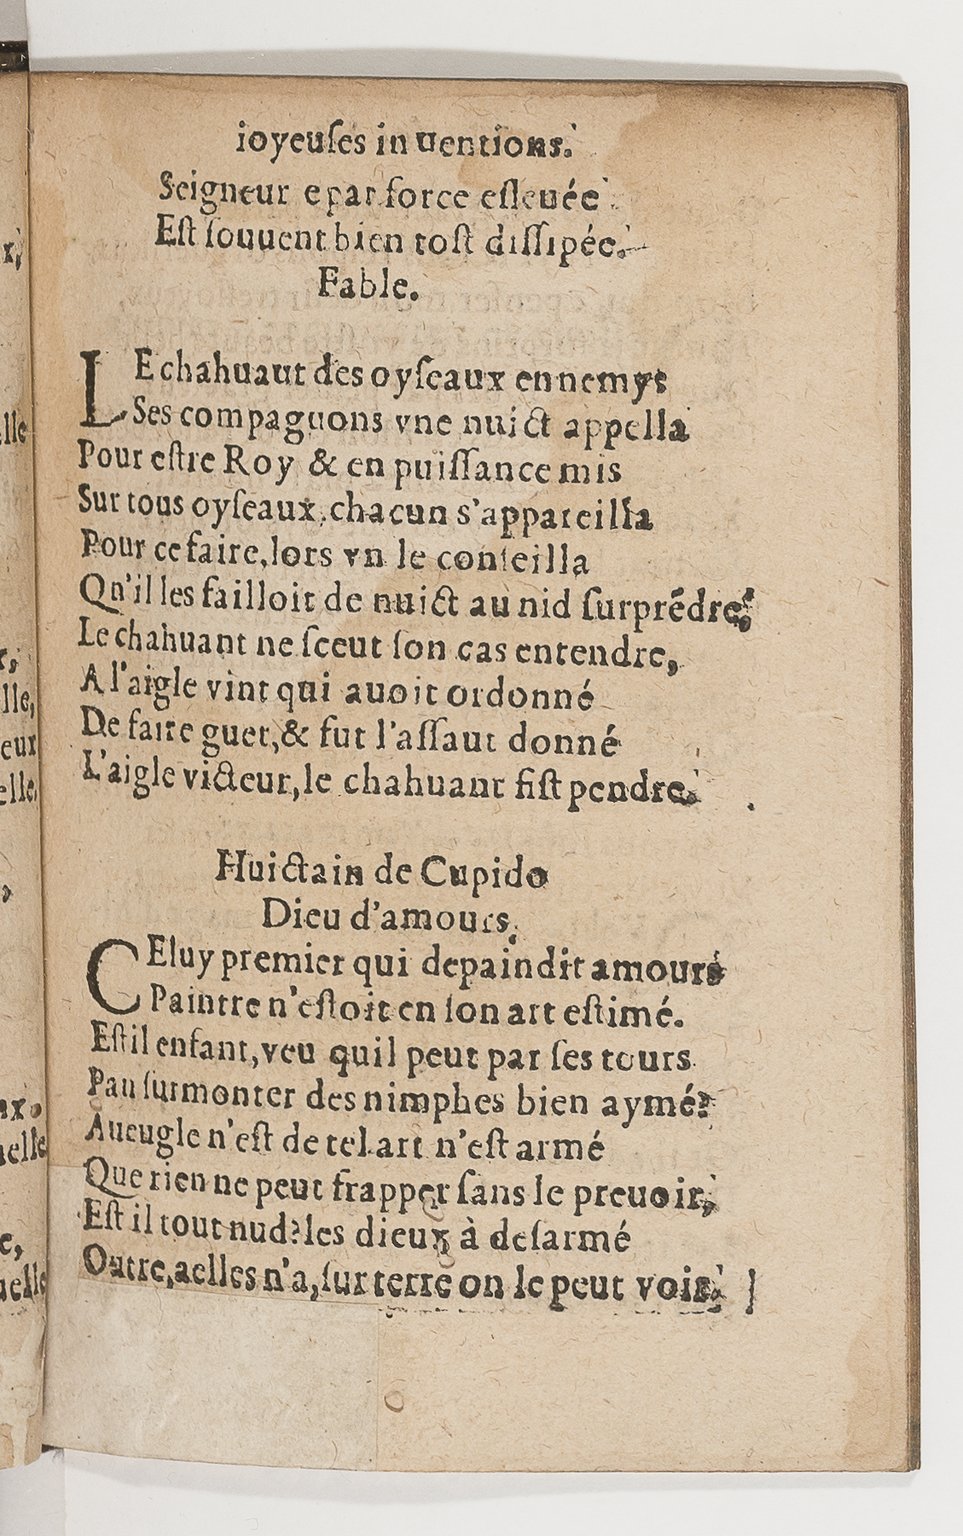 ioyeuſes inuentions.
Seigneur e par force eſleuée
Eſt ſouuent bien toſt diſſipée.
Fable.
LE chahuaut des oyſeaux ennemys
Ses compaguons vne nuict appella
Pour eſtre Roy & en puiſſance mis
Sur tous oyſeaux, chacun s'appareilla
Pour ce faire, lors vn le conſeilla
Qu'il les failloit de nuict au nid ſurprédre,
Le chahuant ne ſceut ſon cas entendre,
A l'aigle vint qui auoit ordonné
De faire guet, & fut l'aſſaut donné
L'aigle victeur, le chahuant fiſt pendre.
Huictain de Cupido
Dieu d'amours.
CEluy premier qui depaindit amours
Paintre n'eſtoit en ſon art eſtimé.
Eſt il enfant, veu quil peut par ſes tours
Pan ſurmonter des nimphes bien aymé?
Aueugle n'eſt de tel art n'eſt armé
Que rien ne peut frapper ſans le preuoir,
Eſt il tout nud? les dieux à deſarmé
Outre, aelles n'a, ſur terre on le peut voir.